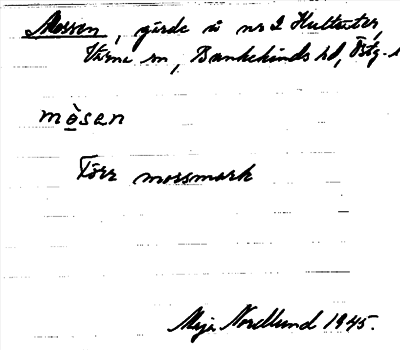 Mossen, gärde å nr 2 Hultsäter,
Värna sn, Bankekinds hd, Östg.
mò̱sen
Torr mossmark
Maja Nordlund 1945.